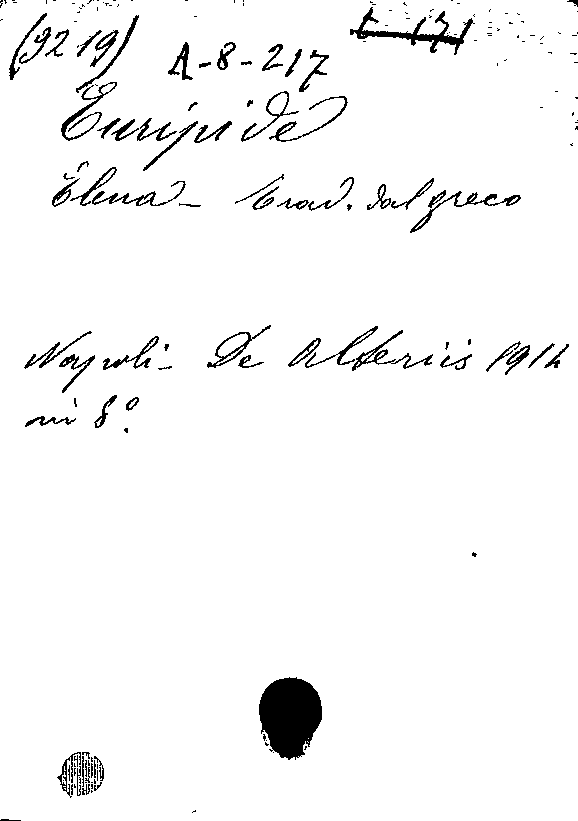 (9219) A-8-217 t 171
Euripide
Elena - Trad. dal greco
Napoli - De Alteriis 1914
in 8º.